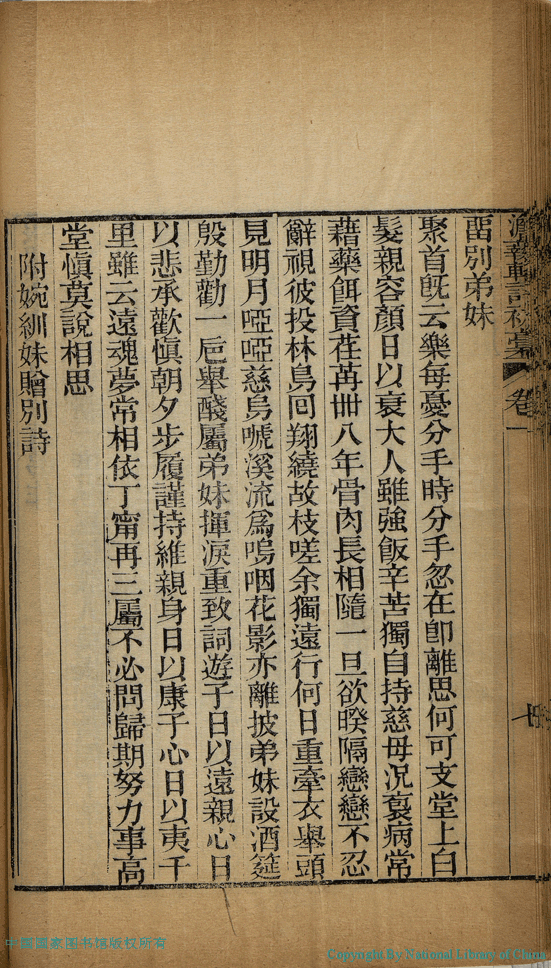 澹蘜軒詩初稾 卷一
畱別弟妹
聚首旣云樂每憂分手時分手忽在卽離思何可支堂上白
髮親容顏日以衰大人雖強飯辛苦獨自持慈母況衰病常
藉藥餌資荏苒卌八年骨肉長相隨一旦欲暌隔戀戀不忍
辭視彼投林鳥回翔繞故枝嗟余獨遠行何日重牽衣舉頭
見明月啞啞慈烏嗁溪流爲嗚咽花影亦離披弟妹設酒筵
殷勤勸一卮舉醆屬弟妹揮淚重致詞遊子日以遠親心日
以悲承歡愼朝夕步履謹持維親身日以康予心日以夷千
里雖云遠魂夢常相依丁甯再三屬不必問歸期努力事高
堂愼莫說相思
附婉紃妹贈別詩
中国国家图书馆版权所有
Copyright By National Library of China